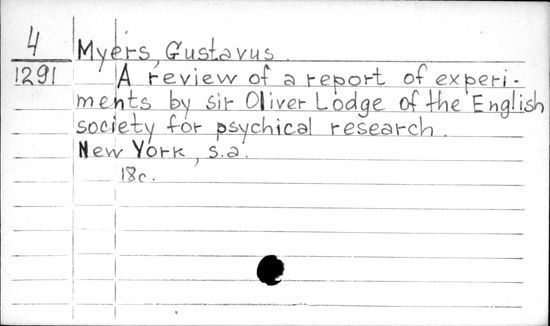 4
Myers, Gustavus.
1291
A review of a report of experi-
ments by sir Oliver Lodge of the English
society for psychical research.
New York, s.a.
18c.